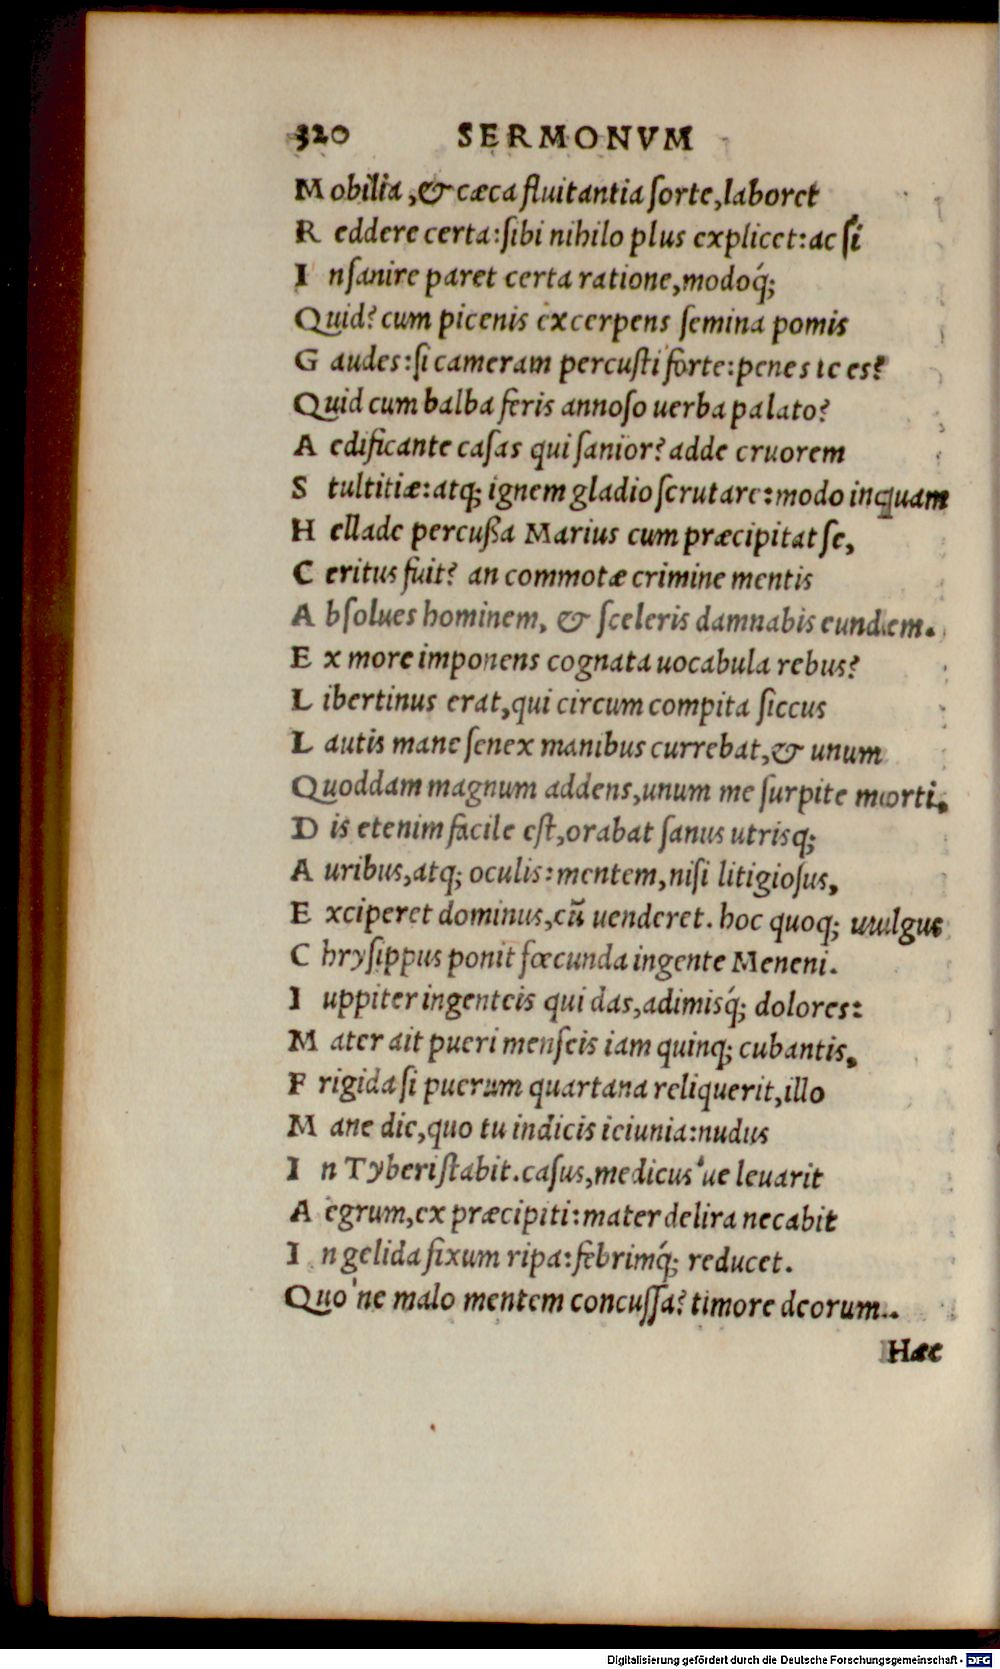 320 SERMONVM
Mobilia, & cæca fluitantia sorte, laboret
Reddere certa: sibi nihilo plus explicet: ac si
Insanire paret certa ratione, modoq́;
Quid? cum picenis excerpens semina pomis
Gaudes: si cameram percusti forte: penes te es?
Quid cum balba feris annoso uerba palato?
Aedificante casas qui sanior? adde cruorem
Stultitiæ: atq; ignem gladio scrutare: modo inquam
Hellade percußa Marius cum præcipitat se,
Ceritus fuit? an commotæ crimine mentis
Absolues hominem, & sceleris damnabis eundem.
Ex more imponens cognata uocabula rebus?
Libertinus erat, qui circum compita siccus
Lautis mane senex manibus currebat, & unum
Quoddam magnum addens, unum me surpite morti,
Dis etenim facile est, orabat sanus utrisq;
Auribus, atq; oculis: mentem, nisi litigiosus,
Exciperet dominus, cū uenderet. hoc quoq; uulgus
Chrysippus ponit fœcunda in gente Meneni.
Iuppiter ingenteis qui das, adimisq́; dolores:
Mater ait pueri menseis iam quinq; cubantis,
Frigida si puerum quartana reliquerit, illo
Mane die, quo tu indicis ieiunia: nudus
In Tyberi stabit. casus, medicus'ue leuarit
Aegrum, ex præcipiti: mater delira necabit
In gelida fixum ripa: febrimq́; reducet.
Quo'ne malo mentem concussa? timore deorum..
Hæc
Digitalisierung gefördert durch die Deutsche Forschungsgemeinschaft - DFG